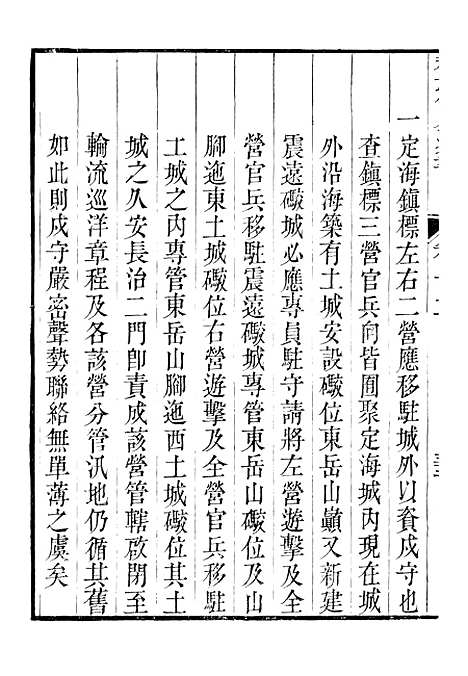 一定海鎮標左右二營應移駐城外以資戍守也
查鎮標三營官兵向皆囿聚定海城內現在城
外沿海築有土城安設礮位東岳山巔又新建
震遠礮城必應專員駐守請將左營遊擊及全
營官兵移駐震遠礮城專管東岳山礮位及山
腳迤東土城礮位右營遊擊及全營官兵移駐
土城之內專管東岳山腳迤西土城礮位其土
城之久安長治二門卽責成該營管轄啟閉至
輪流巡洋章程及各該營分管汛地仍循其舊
如此則戍守嚴密聲勢聯絡無單薄之虞矣